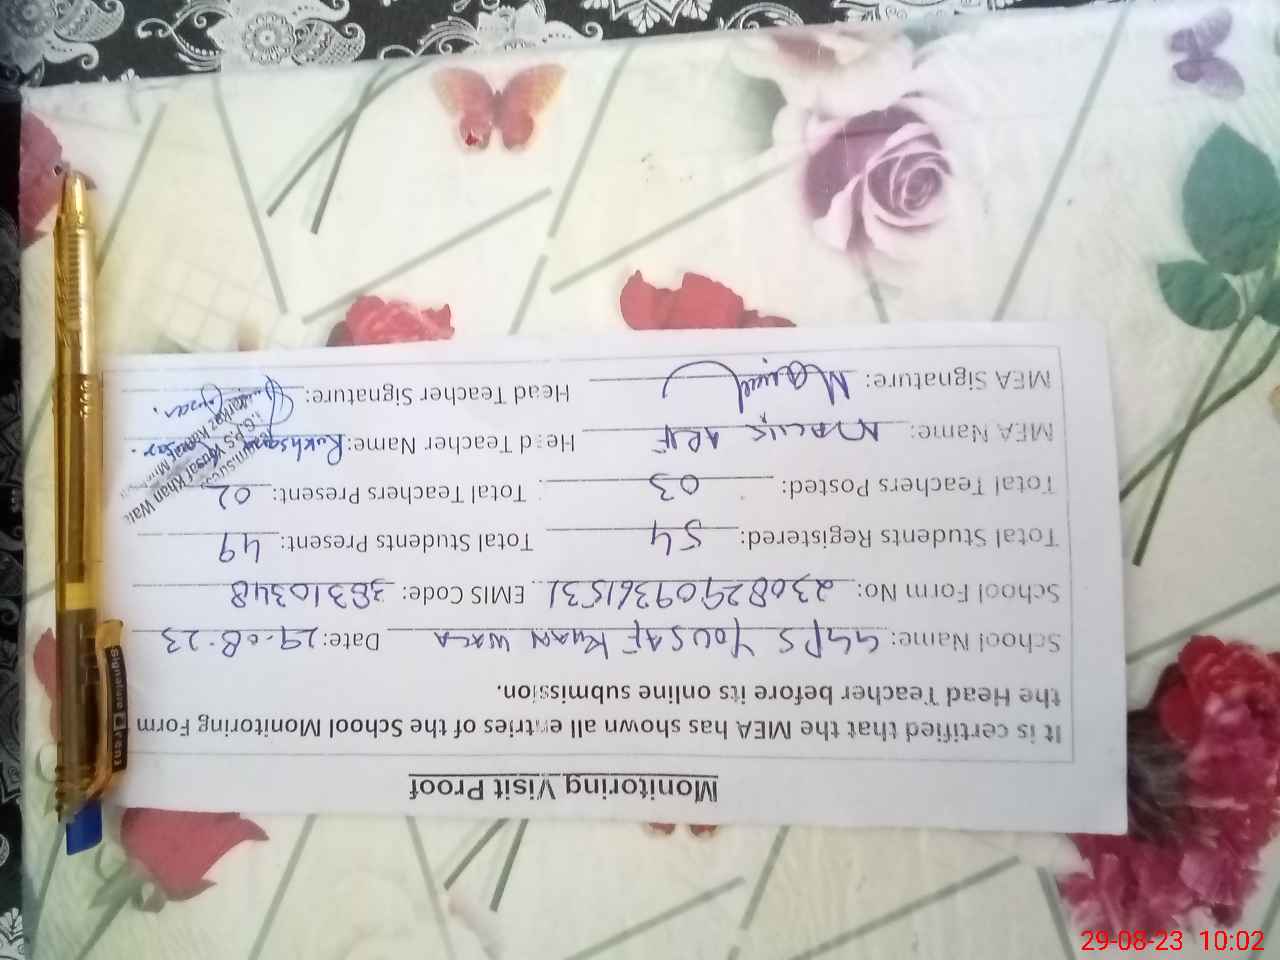 Monitoring Visit Proof
It is certified that the MEA has shown all entries of the School Monitoring Form
the Head Teacher before its online submission.
School Name: GGPS YOUSAF KHAN WALA Date: 29.08.23
School Form No: 23082909361531 EMIS Code: 38310348
Total Students Registered: 54 Total Students Present: 49
Total Teachers Posted: 03 Total Teachers Present: 02
MEA Name: ARIF Head Teacher Name: Rukhsana
MEA Signature: Head Teacher Signature:
Yousaf Khan Wala
Signature
29-08-23 10:02